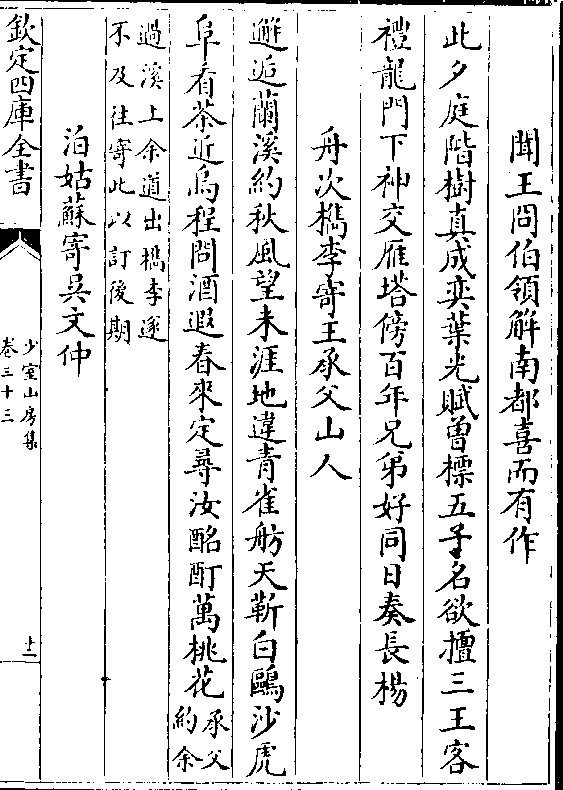 聞王冏伯領解南都喜而有作
此夕庭階樹真成奕葉光賦曾標五子名欲擅三王客
禮龍門下神交雁塔傍百年兄弟好同日奏長楊
舟次檇李寄王承父山人
邂逅蘭溪約秋風望未涯地違青雀舫天靳白鷗沙虎
阜看茶近烏程問酒遐春來定尋汝酩酊萬桃花承父
約余
過溪上余道出檇李遂
不及往寄此以訂後期
泊姑蘇寄吳文仲
欽定四庫全書
少室山房集
卷三十三
十二